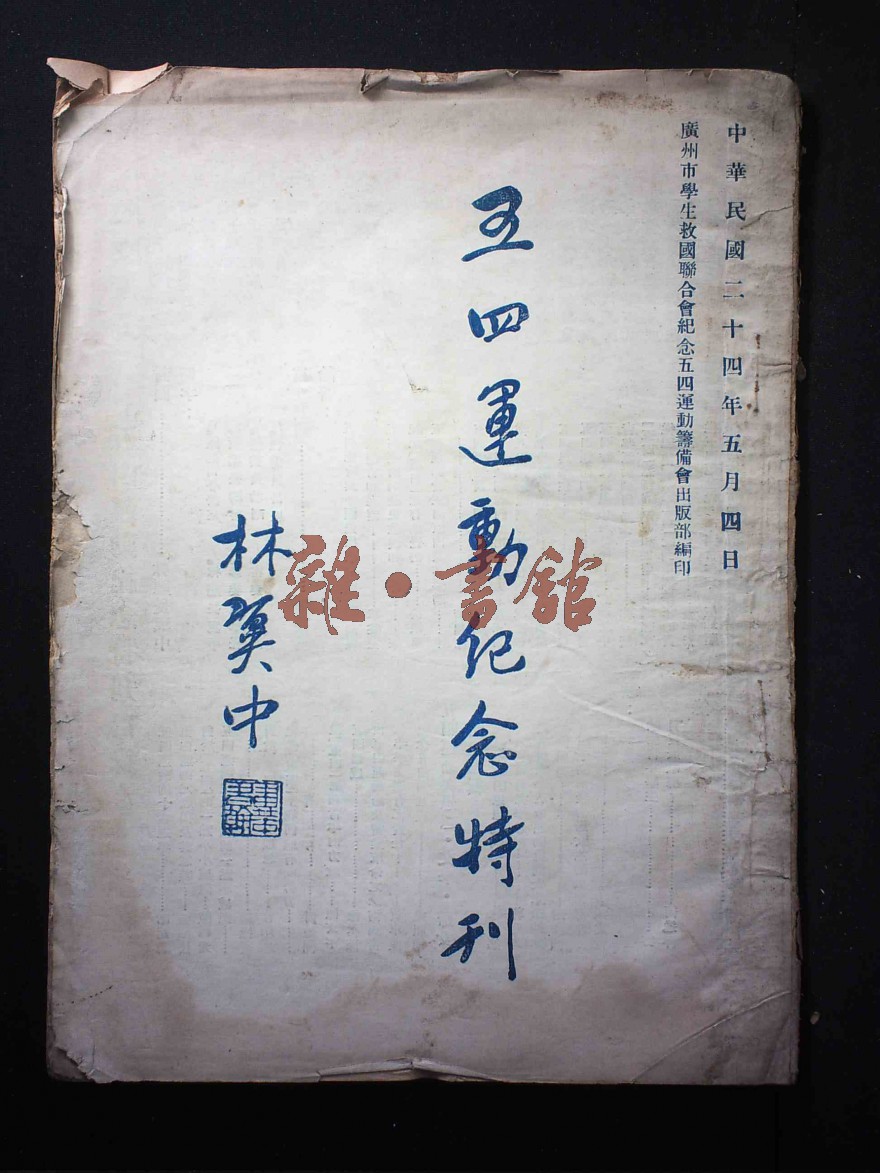 中華民國二十四年五月四日
廣州市學生救國聯合會紀念五四運動籌備會出版部編印
五四運動紀念特刊
林翼中
雜·書館